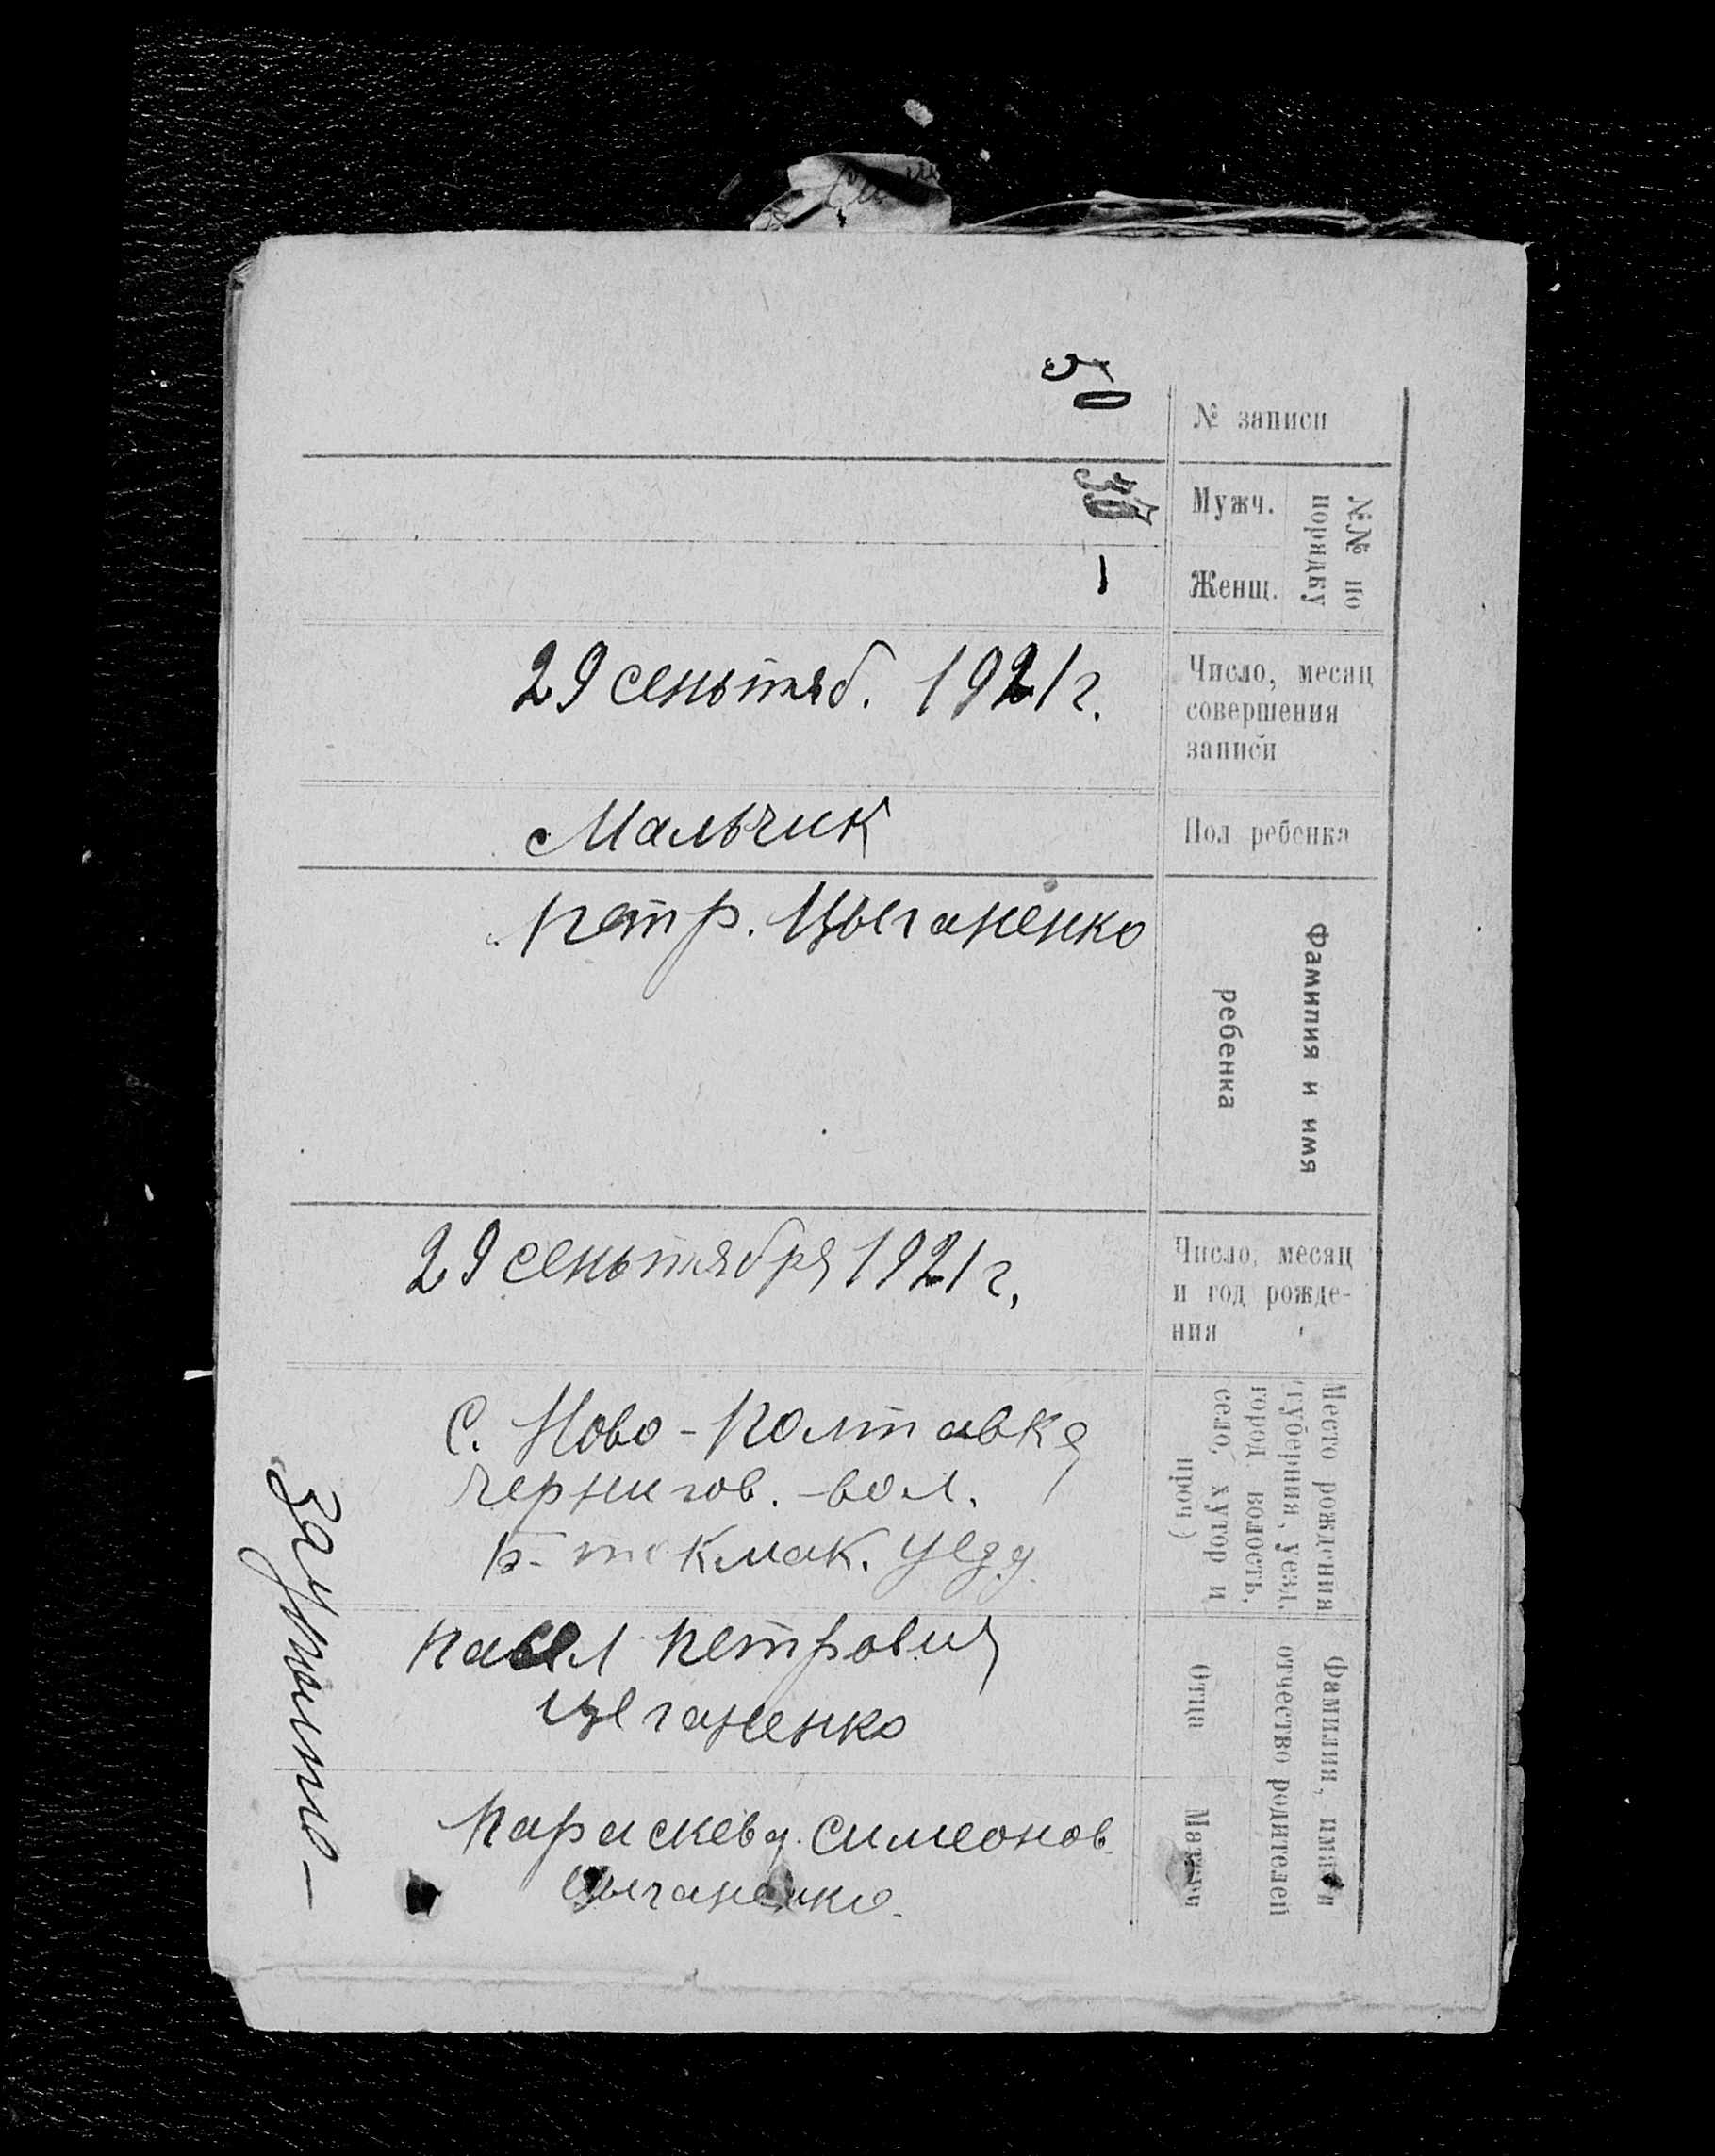 № записи
№№ по
порядку
Мужч.
Женщ.
1
Число, месяц
совершения
записи
29 сеньтяб. 1921 г.
Пол ребенка
Мальчик
Фамилия и имя
ребенка
Петр. Цыганенко
Число, месяц
и год рожде-
ния
29 сеньтября 1921 г.
Место рождения
(губерния, уезд,
город, волость,
село, хутор и
проч)
С. Ново-Полтавка
Чернигов. вол.
Б-токмак. уезд.
Фамилия, имя и
отчество родителей
Отца
Павел Петрович
Цыганенко
Матери
Параскева Симеонов.
Цыганенко.